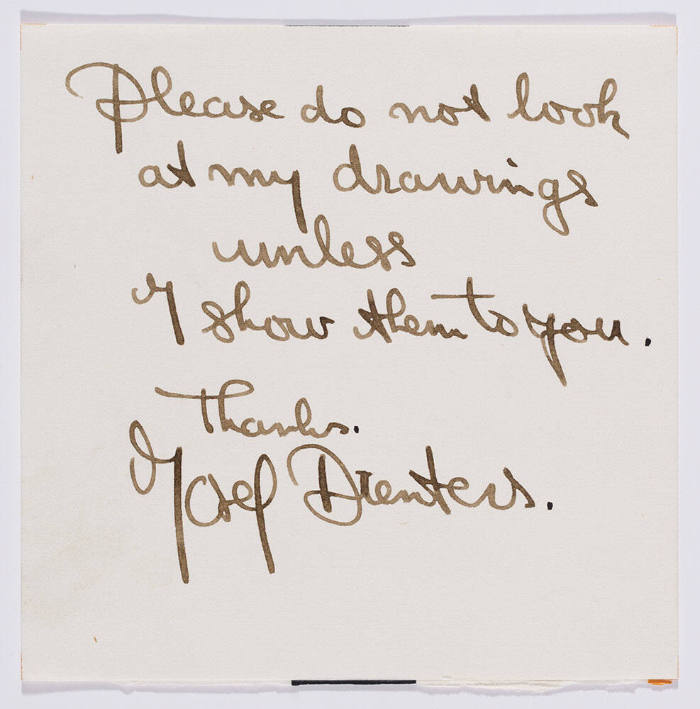 Please do not look
at my drawings
unless
I show them to you.
Thanks.
Yosef Drenters.